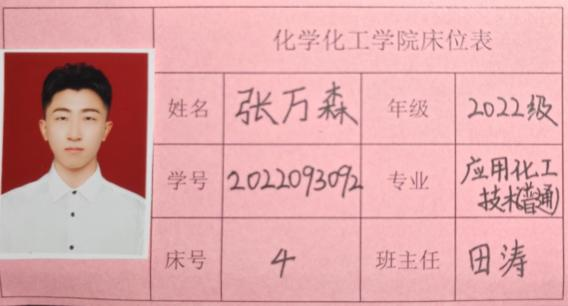 化学化工学院床位表
姓名 张万森 年级 2022级
学号 2022093092 专业 应用化工
技术(普通)
床号 4 班主任 田涛